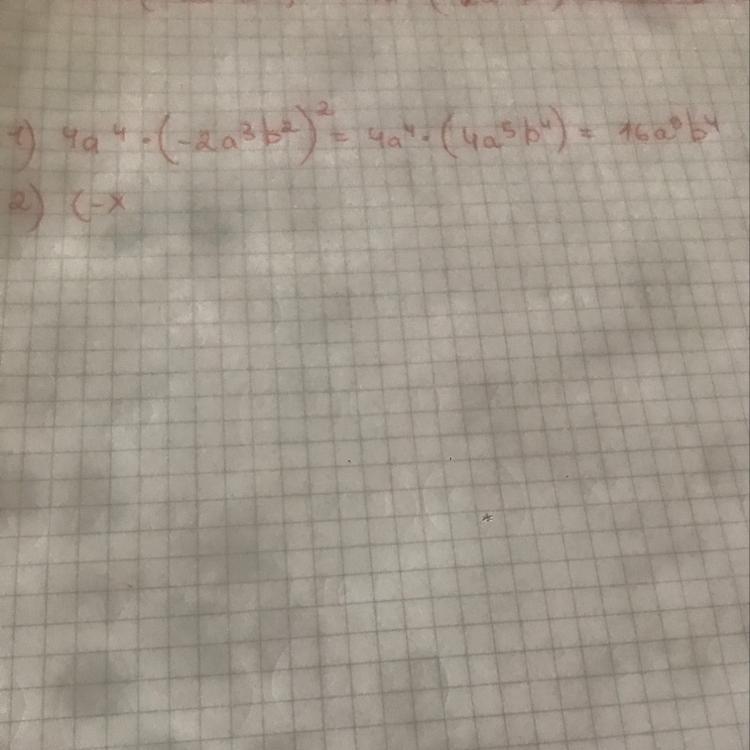 1) 4a⁴ · (-2a³b²)² = 4a⁴ · (4a⁵b⁴) = 16a⁹b⁴
2) (-x